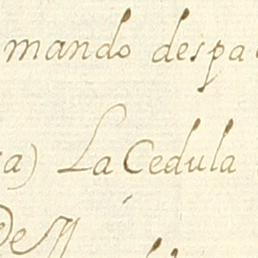 mando despa
a) La Cedula
De